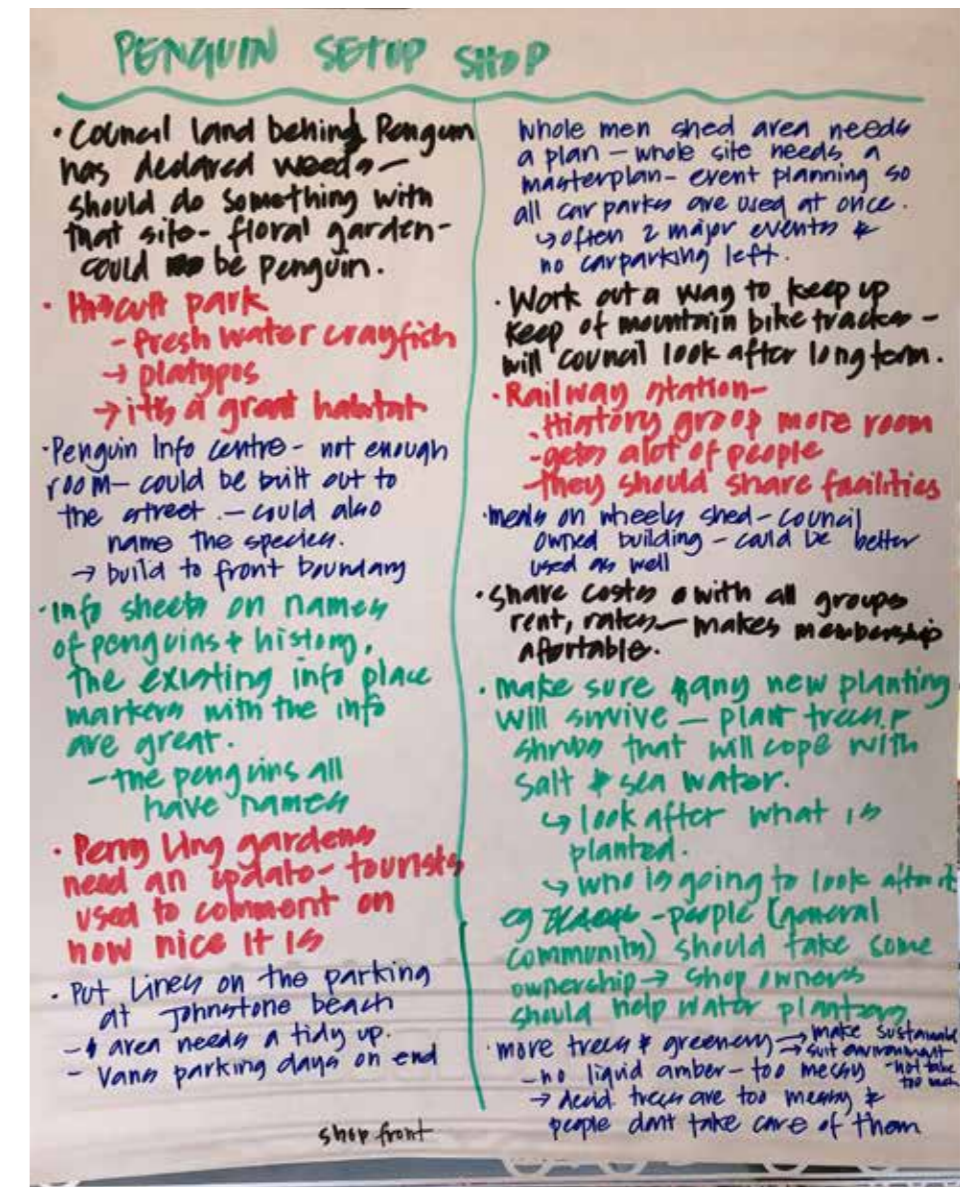 PENGUIN SETUP SHOP
• Council land behind Penguin
has declared weeds -
should do something with
that site - floral garden -
could be penguin.
• park
- fresh water crayfish
→ platypos
→ its a great habitat
• Penguin Info centre - not enough
room - could be built out to
the street. - could also
name the species.
→ build to front boundary
• Info sheets on names
of penguins + history,
the existing info place
markers with the info
are great.
- the penguins all
have names
• Perry Ling gardens
need an update - tourists
used to comment on
how nice it is
• Put Lines on the parking
at Johnstone beach
- area needs a tidy up.
- Vans parking days on end
shop front
Whole men shed area needs
a plan - whole site needs a
masterplan - event planning so
all car parks are used at once.
↳ often 2 major events &
no carparking left.
• Work out a way to keep up
keep of mountain bike tracks -
will council look after long term.
• Railway station -
- History group more room
- gets alot of people
- they should share facilities
• meals on wheels shed - council
owned building - could be better
used as well
• Share costs with all groups
rent, rates - makes membership
afortable.
• make sure any new planting
will survive - plant trees &
shrubs that will cope with
salt & sea water.
↳ look after what is
planted.
↳ who is going to look after it
eg - people (general
community) should take some
ownership → shop owners
should help water planters
• more trees & greenery → make sustainable
→ suit environment
- no liquid amber - too messy - not take
too much
→ decid trees are too messy &
people dont take care of them